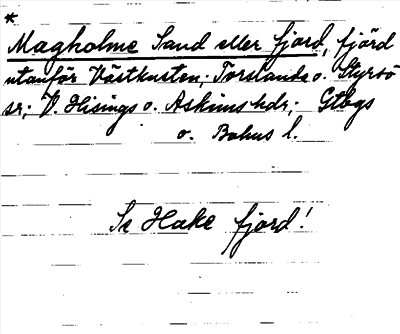 *
Magholme Sund eller fjord, fjärd
utanför Västkusten; Torslanda o. Styrsö
sr; V. Hisings o. Askims hdr; Gtbgs
o. Bohus l.
Se Hake fjord!